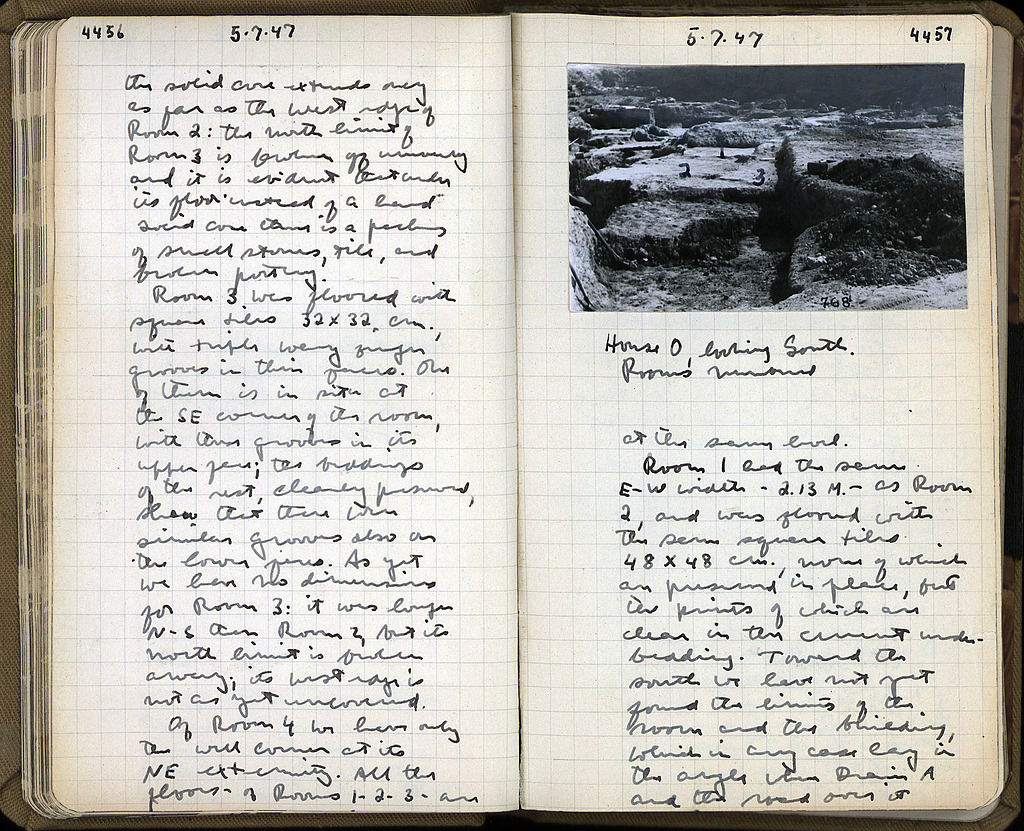 4456 5.7.47
the solid core extends only
as far as the west edge of
Room 2: the north limit of
Room 3 is broken off unevenly
and it is evident that under
its floor instead of a hard
solid core there is a packing
of small stones, tile, and
broken pottery.
Room 3 was floored with
square tiles 32 x 32 cm.,
with triple wavy finger
grooves in their faces. One
of them is in situ at
the SE corner of the room,
with three grooves in its
upper face; the beddings
of the rest, clearly preserved,
show that there were
similar grooves also on
the lower faces. As yet
we have no dimensions
for Room 3: it was longer
N-S than Room 2, but its
north limit is broken
away; its west edge is
not as yet uncovered.
Of Room 4 we have only
the wall corner at its
NE extremity. All the
floors - of Rooms 1-2-3 - are
5.7.47 4457
2 3
768
House O, looking South.
Rooms numbered
at the same level.
Room 1 had the same
E-W width - 2.13 M. - as Room
2, and was floored with
the same square tiles
48 x 48 cm., none of which
are preserved in place, but
the prints of which are
clear in the cement under-
bedding. Toward the
south we have not yet
found the limits of the
room and the building,
which in any case lay in
the angle where Drain A
and the road over it